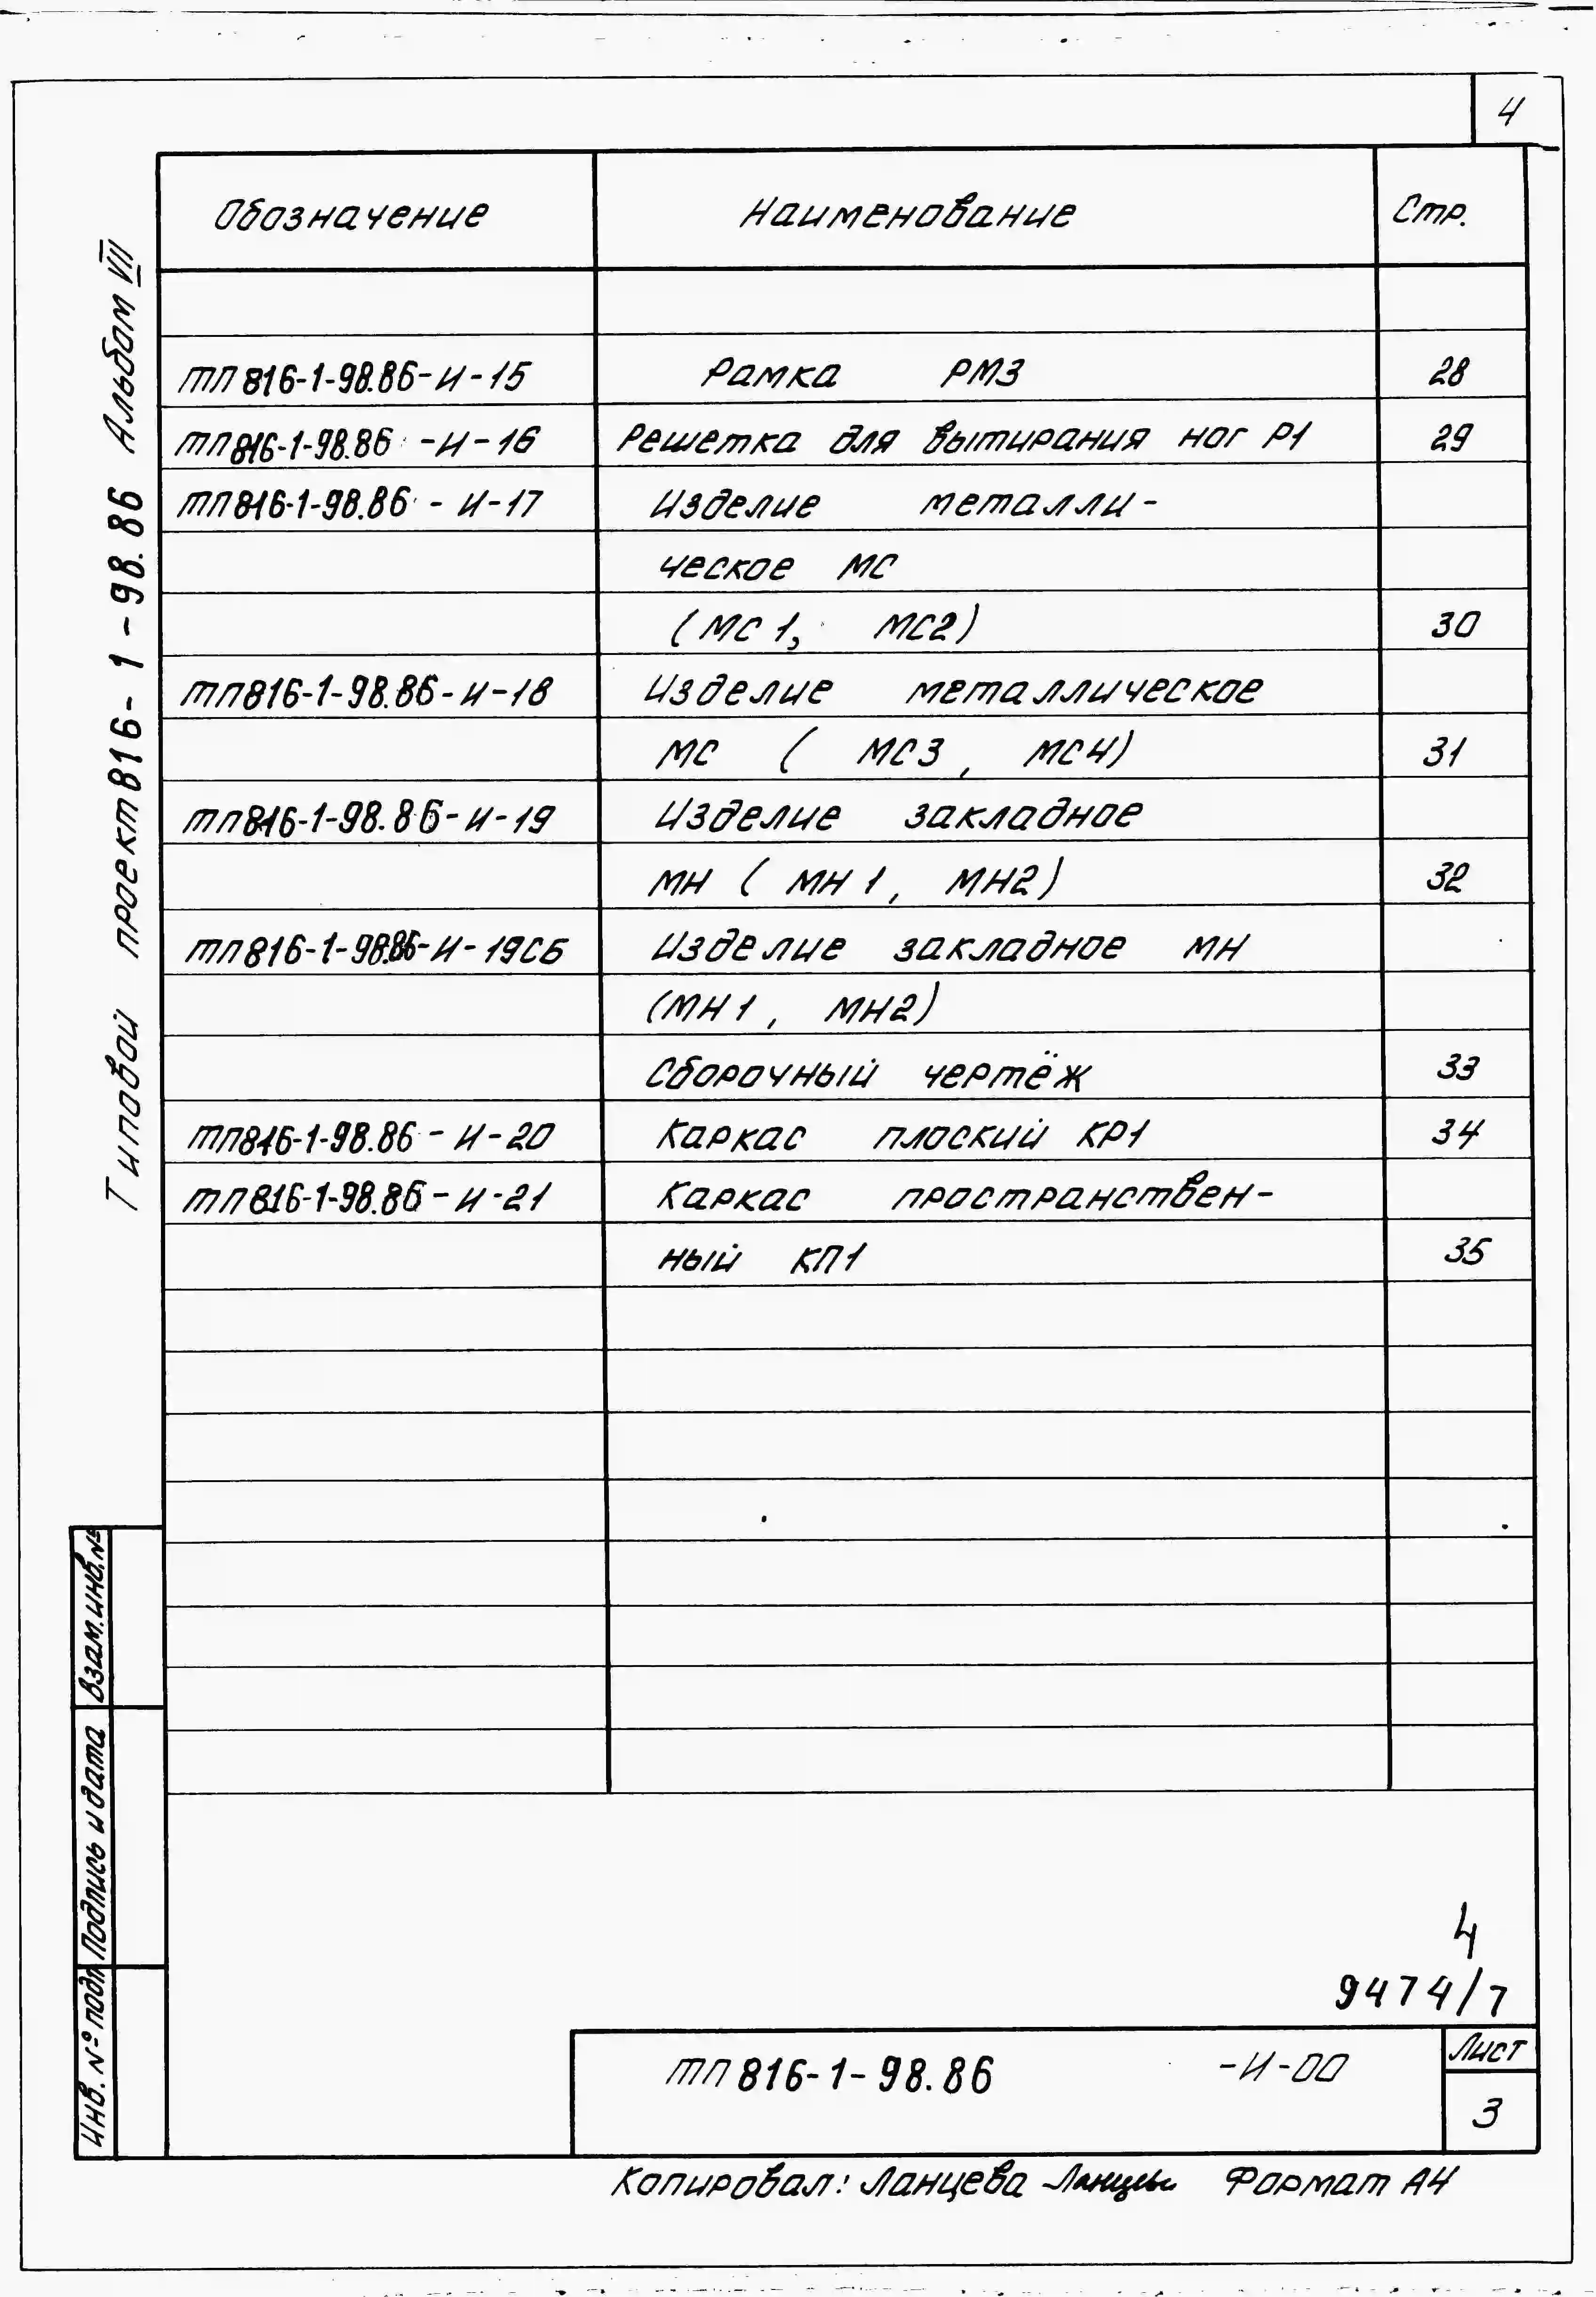 4
Обозначение Наименование Стр.
ТП 816-1-98.86-И-15 Рамка РМ3 28
ТП 816-1-98.86 -И-16 Решетка для вытирания ног Р1 29
ТП 816-1-98.86 - И-17 Изделие металли-
ческое МС
(МС1, МС2) 30
ТП 816-1-98.86-И-18 Изделие металлическое
МС ( МС3, МС4) 31
ТП 816-1-98.86-И-19 Изделие закладное
МН ( МН1, МН2) 32
ТП 816-1-98.86-И-19СБ Изделие закладное МН
(МН1, МН2)
Сборочный чертёж 33
ТП 816-1-98.86 - И-20 Каркас плоский КР1 34
ТП 816-1-98.86-И-21 Каркас пространствен-
ный КП1 35
Типовой проект 816-1-98.86 Альбом VII
Взам.инв.№
Подпись и дата
Инв. № подл
4
9474/7
ТП 816-1-98.86 -И-00
Лист
3
Копировал: Ланцева Формат А4